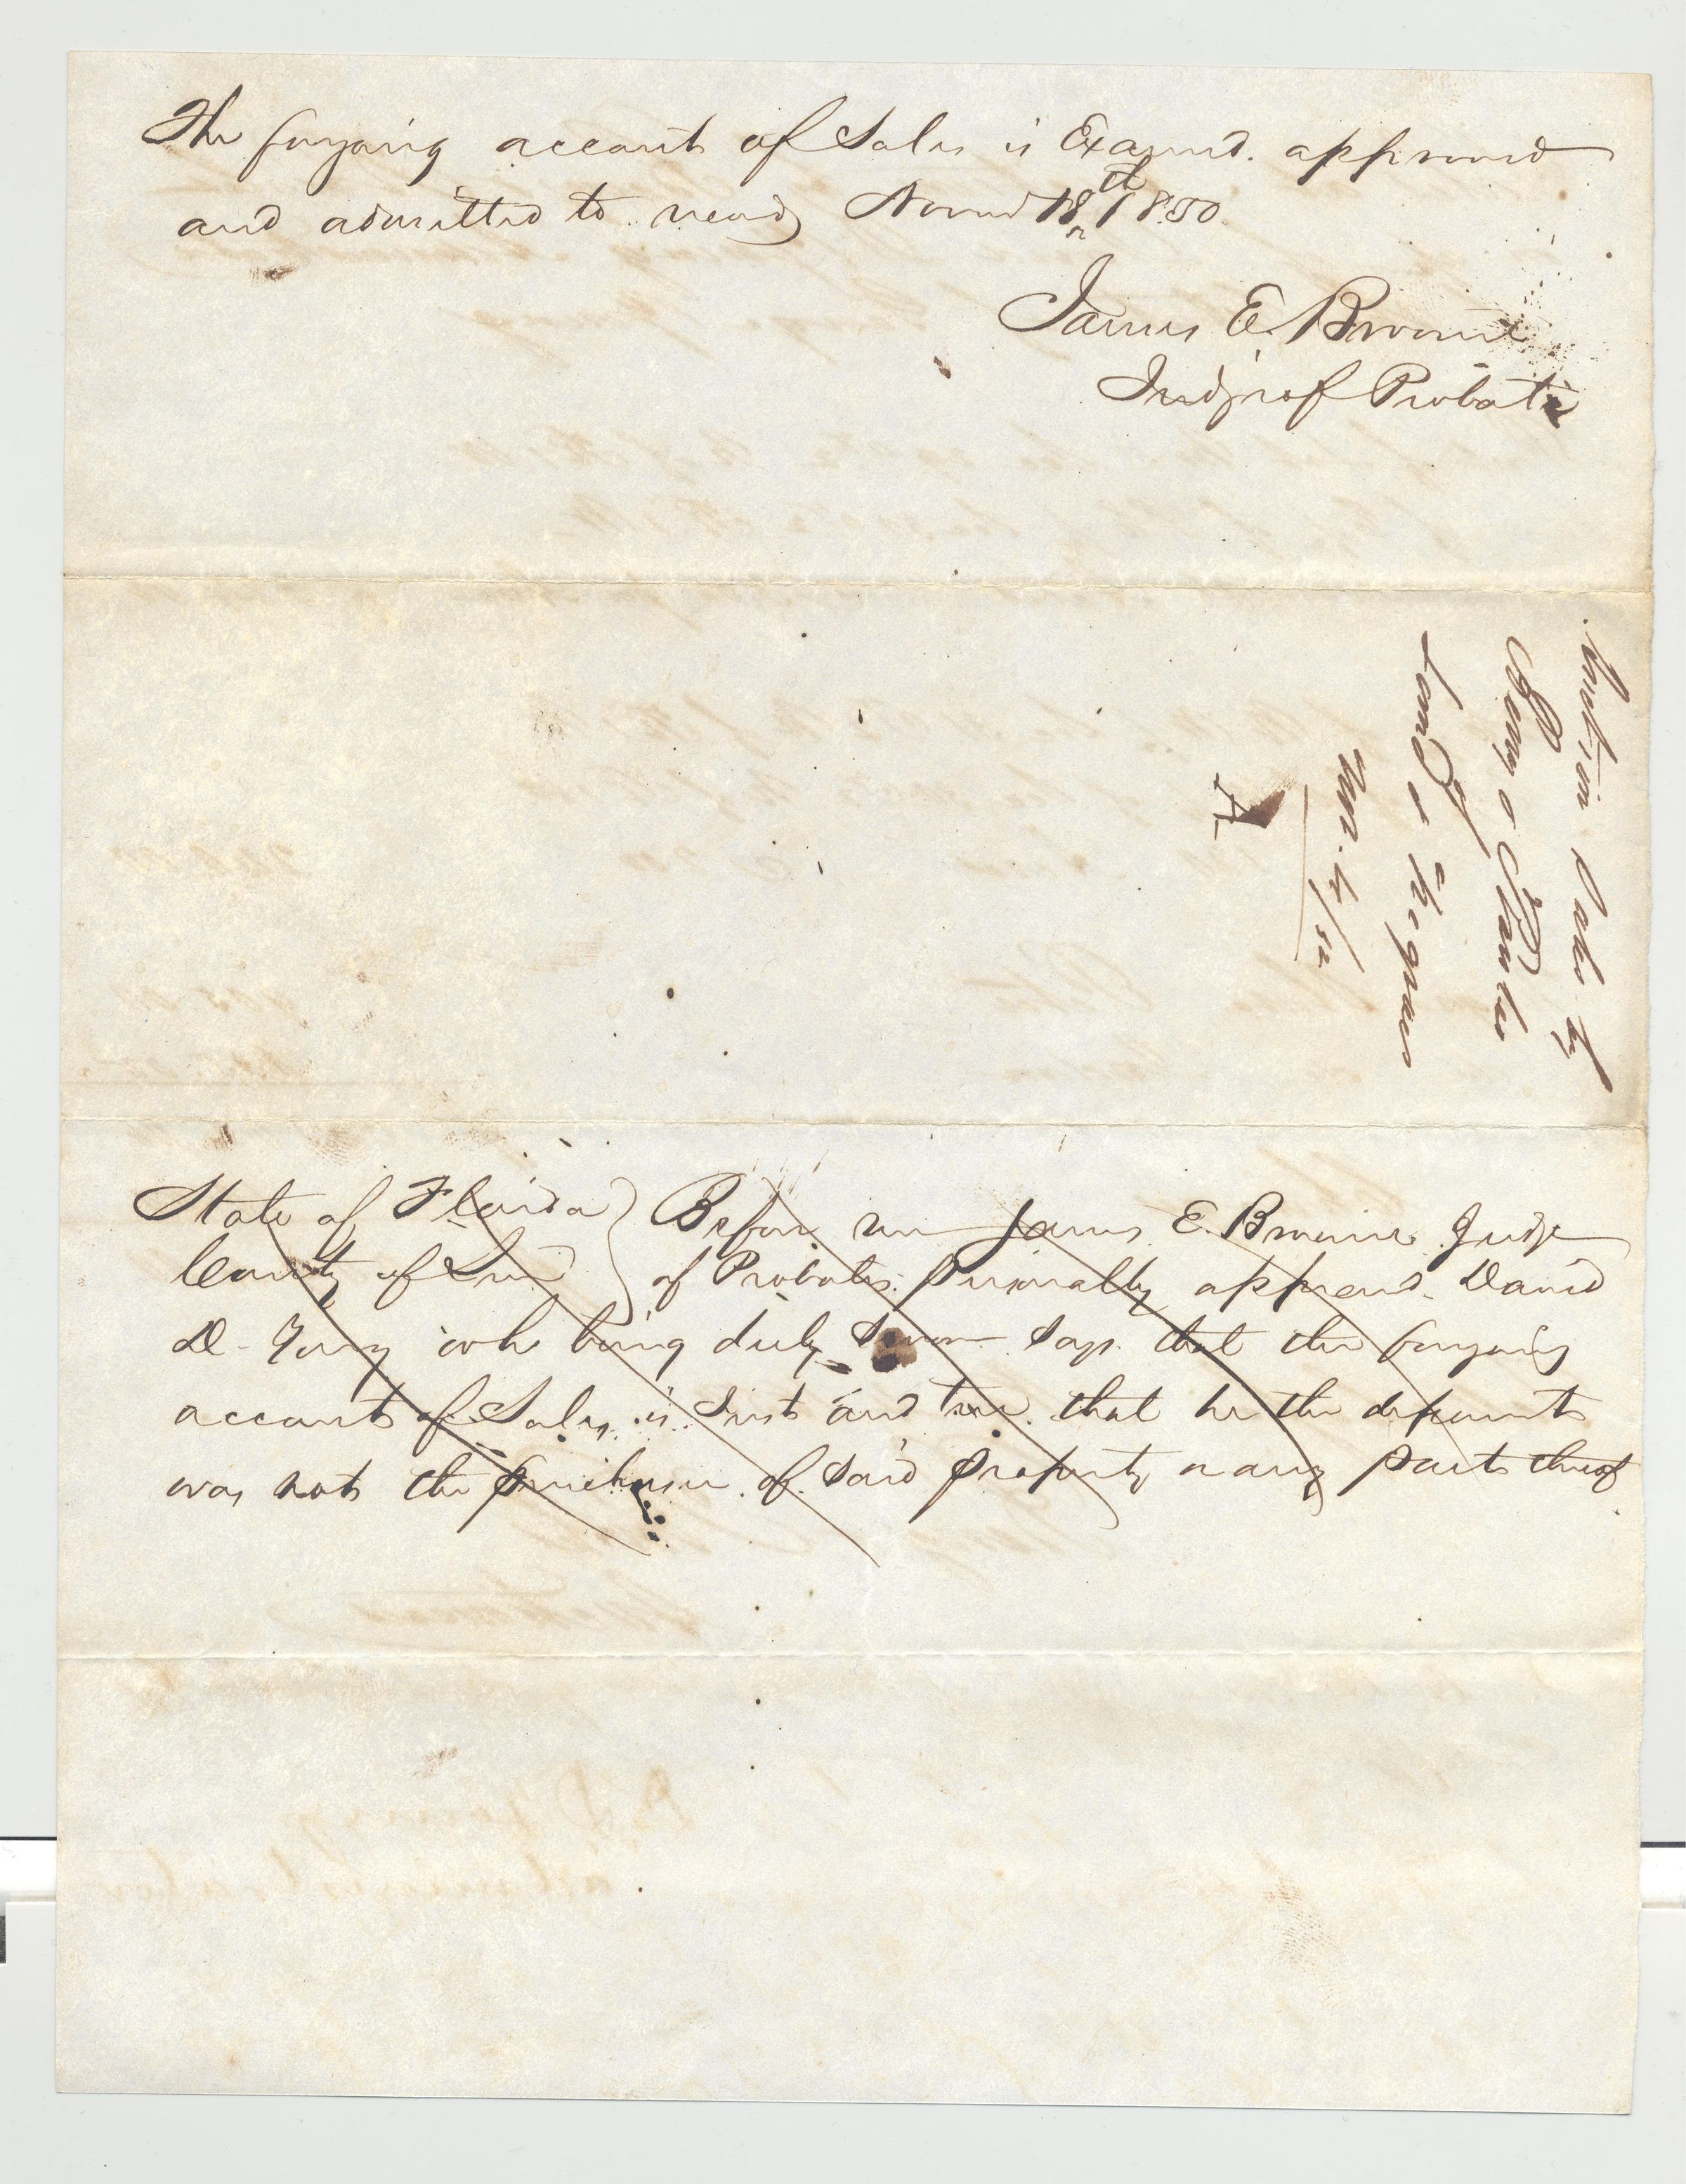 The foregoing account of Sales is Examined. approved
and admitted to record Novem 18th 1850.
James E. Broome
Judge of Probate
Auction Sales by
Berry & Barnes
Land & Negroes
A
State of Florida } Before me James E. Broome Judge
County of Leon } of Probate. Personally appeared. David
D. who being duly sworn says. that the foregoing
account of Sales. is Just and true. that he the deponent
was not the purchaser. of. said property or any part thereof